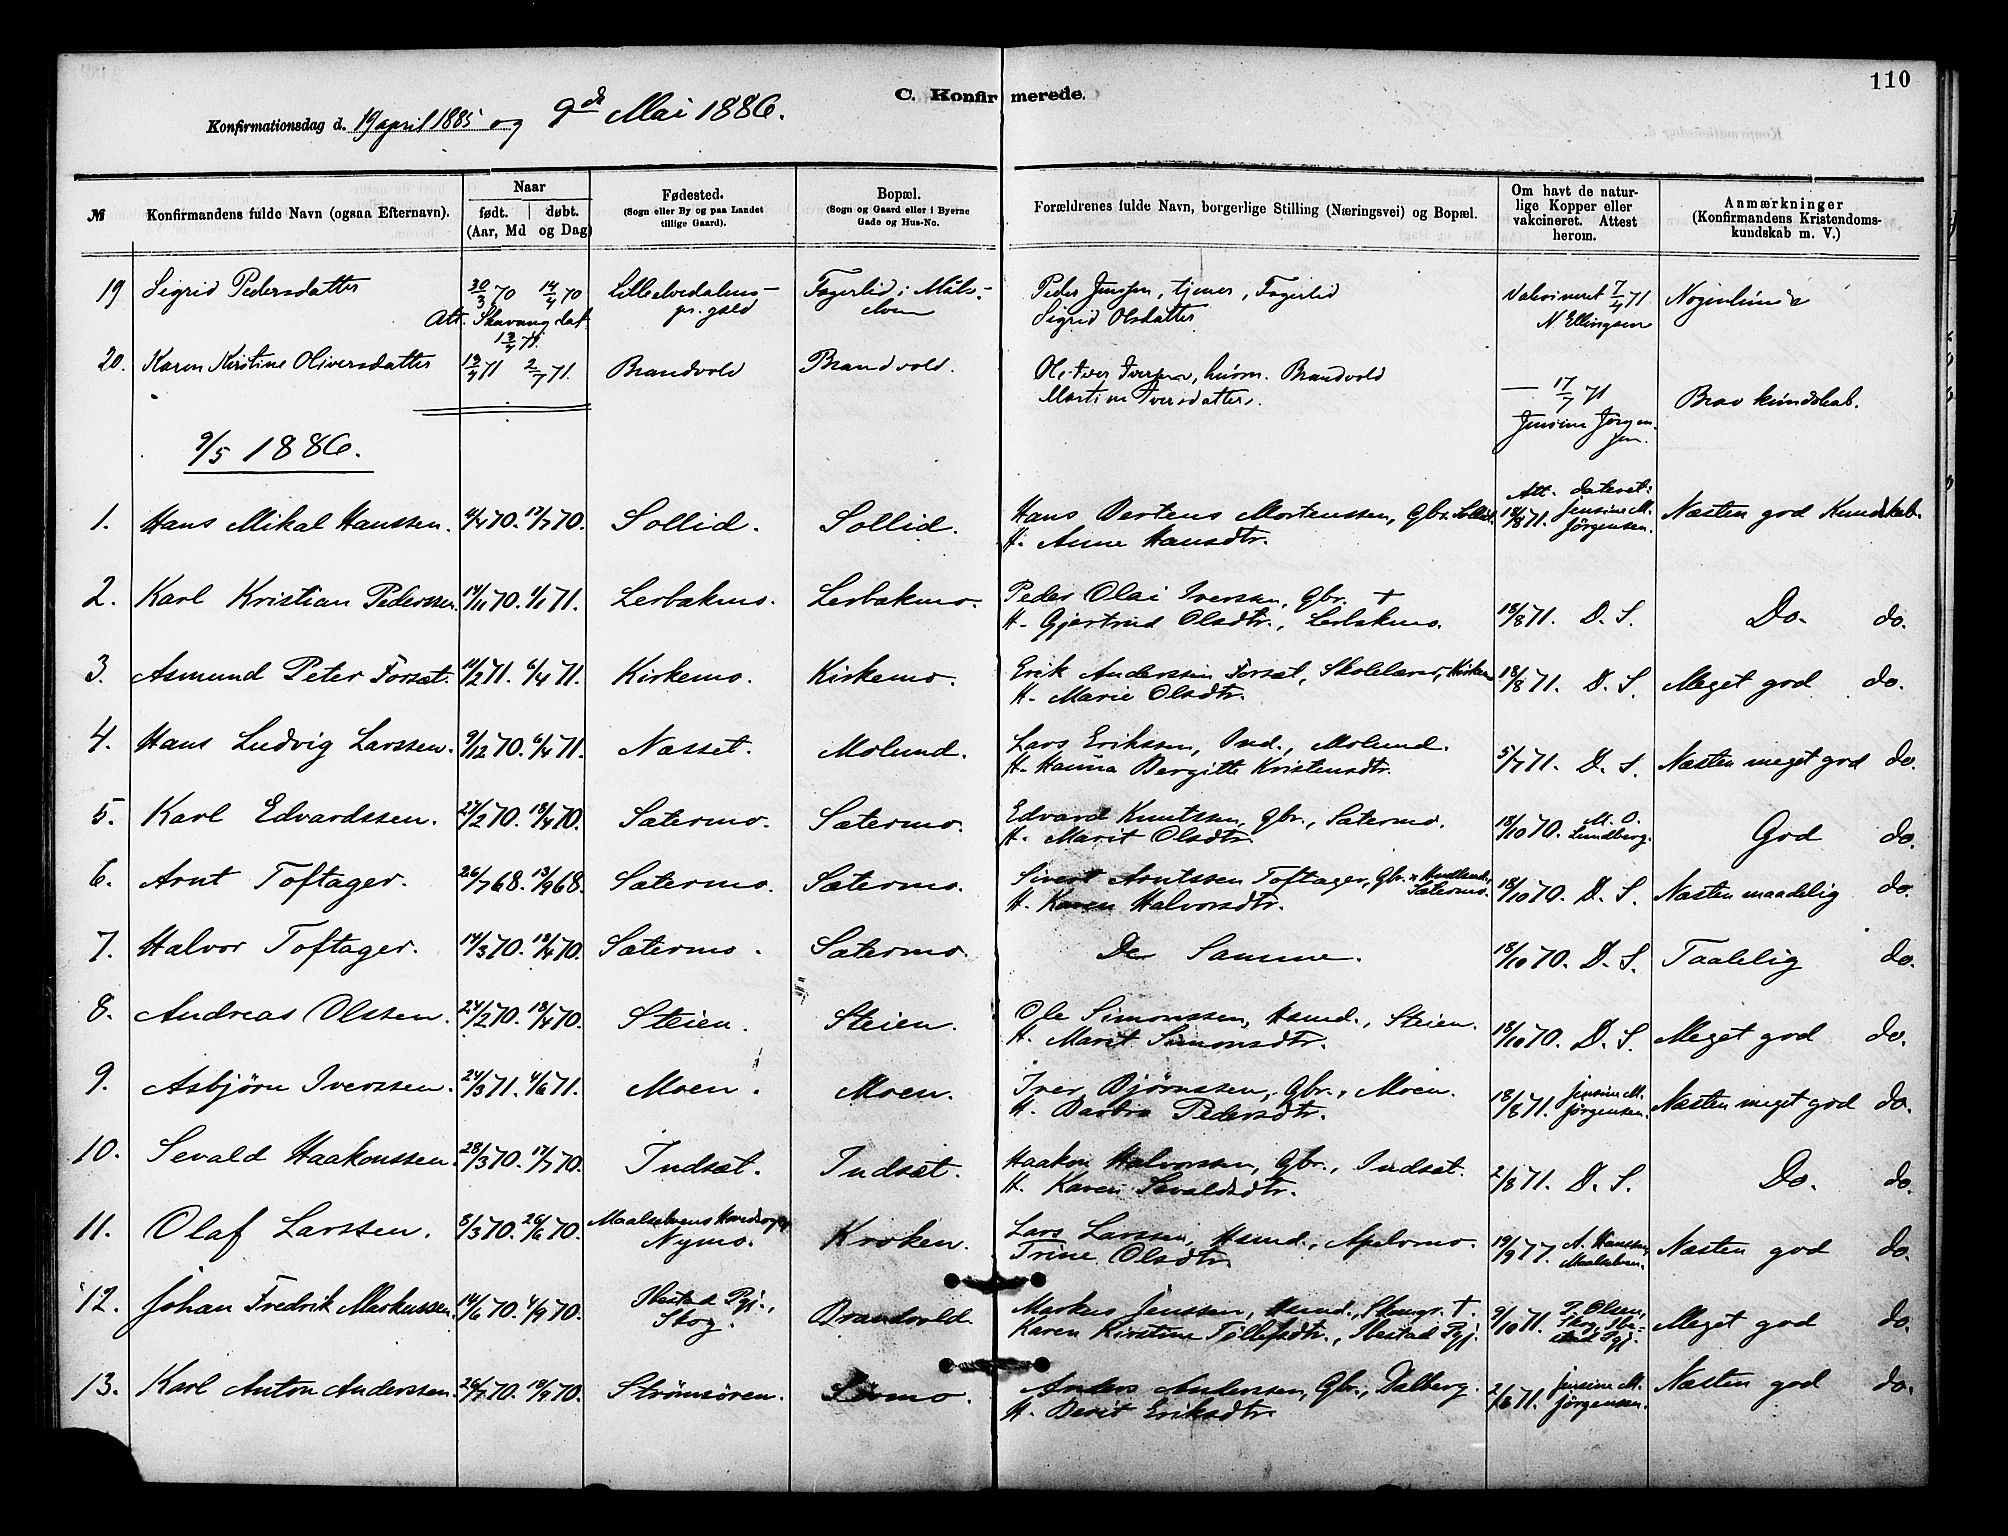 110
C. Konfirmerede.
Konfirmationsdag d. 19 april 1885 og 9de Mai 1886.
№ Konfirmandens fulde Navn (ogsaa Efternavn). Naar født. døbt. (Aar, Md og Dag) Fødested. (Sogn eller By og paa Landet tillige Gaard). Bopæl. (Sogn og Gaard eller i Byerne Gade og Hus-No. Forældrenes fulde Navn, borgerlige Stilling (Næringsvei) og Bopæl. Om havt de naturlige Kopper eller vakcineret. Attest herom. Anmærkninger (Konfirmandens Kristendomskundskab m. V.)
19 Sigrid Pedersdatter 30/3 70 14/4 70 Lilleelvedalens- Fagerlid i Måls- Peder Jenssen, tjener, Fagerlid Vakcineret 7/4 71
Att. Stavang dat. pr.gjeld elven Sigrid Olsdatter N Ellingsen
20. Karen Kristine Oliversdatter 71 2/7 71. Brandvold Brandvold. Iversen, husm. Brandvold — 17/7 71 Brav kundskab.
Martine Iversdatter. Jensine Jörgensen.
9/5 1886.
1. Hans Mikal Hanssen. 4/4 70. 17/7 70. Sollid. Sollid. Hans Bertens Mortenssen, Gbr. Sollid. Att. dateret: 18/8 71. Jensine M. Jörgensen. Næsten god Kundskab.
H. Anne Hansdtr.
2. Karl Kristian Pederssen. 14/11 70. 1/1 71. Lerbakmo. Lerbakmo. Peder Olai Iverssen, Gbr. + 18/8 71. D. S. Do. do.
H. Gjertrud Olsdtr., Lerbakmo.
3. Asmund Peter Forsæt. 11/2 71. 6/4 71. Kirkemo. Kirkemo. Erik Anderssen Forsæt, Skolelærer, Kirkemo 18/8 71. D. S. Meget god do.
H. Marie Olsdtr.
4. Hans Ludvig Larssen. 9/12 70. 6/4 71. Næsset. Molund. Lars Erikssen, Ind., Molund. 5/7 71. D. S. Næsten meget god do.
H. Hanna Bergitte Kristensdtr.
5. Karl Edvardssen. 27/2 70. 18/4 70. Sætermo. Sætermo. Edvard Knutssen, Gbr., Sætermo. 18/10 70. M. O. Lundberg. God do.
H. Marit Olsdtr.
6. Arnt Toftager. 26/7 68. 13/9 68. Sætermo. Sætermo. Sivert Arntssen Toftager, Gbr. Sætermo. 18/10 70. D. S. Næsten maadelig do.
H. Karen Halvorsdtr.
7. Halvor Toftager. 14/3 70. 18/4 70. Sætermo. Sætermo. De Samme. 18/10 70. D. S. Taalelig do.
8. Andreas Olssen. 24/2 70. 18/4 70. Steien. Steien. Ole Simonssen, Hsmd., Steien. 18/10 70. D. S. Meget god do.
H. Marit Simonsdtr.
9. Asbjörn Iverssen. 24/3 71. 4/6 71. Moen. Moen. Iver Bjørnssen, Gbr., Moen. 18/8 71. Jensine M. Jörgensen. Næsten meget god do.
H. Barbra Pedersdtr.
10. Sevald Haakonssen. 28/3 70. 17/7 70. Indsæt. Indsæt. Haakon Halvorssen, Gbr., Indsæt. 2/8 71. D. S. Do. do.
H. Karen Sevaldsdtr.
11. Olaf Larssen. 8/3 70. 26/6 70. Maalselvens Hovedsogn Nymo. Kroken. Lars Larssen, Hsmd., Apelomo. 19/9 77. A. Hanssen, Maalselven. Næsten god do.
Trine Olsdtr.
12. Johan Fredrik Markussen. 14/6 70. 4/9 70. Ibestad Pgj., Skog. Brandvold. Markus Jenssen, Hsmd., Skog. +. 9/10 71. P. Olsen, Skog, Ibestad Pgj. Meget god do.
Karen Kirstine Tillefsdtr., Ibestad Pgj.
13. Karl Anton Anderssen. 26/7 70. 18/9 70. Strömsören. Sørmo. Anders Anderssen, Gbr., Dalberg. 2/8 71. Jensine M. Jörgensen. Næsten god do.
H. Berit Eriksdtr.